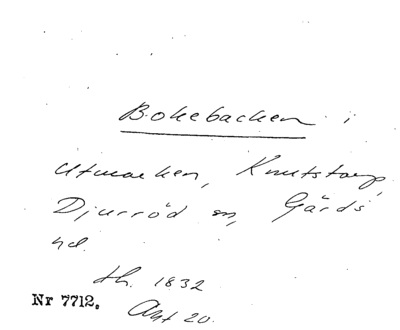 Bokebacken i
utmarken, Knutstorp,
Djurröd sn, Gärds
hd.
th. 1832
Nr 7712. Akt 20.